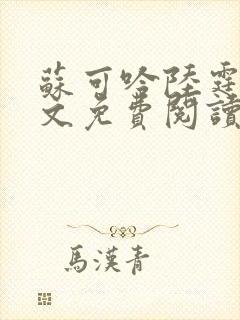 蘇可哈陸霆
文免費閱讀
馬漢青